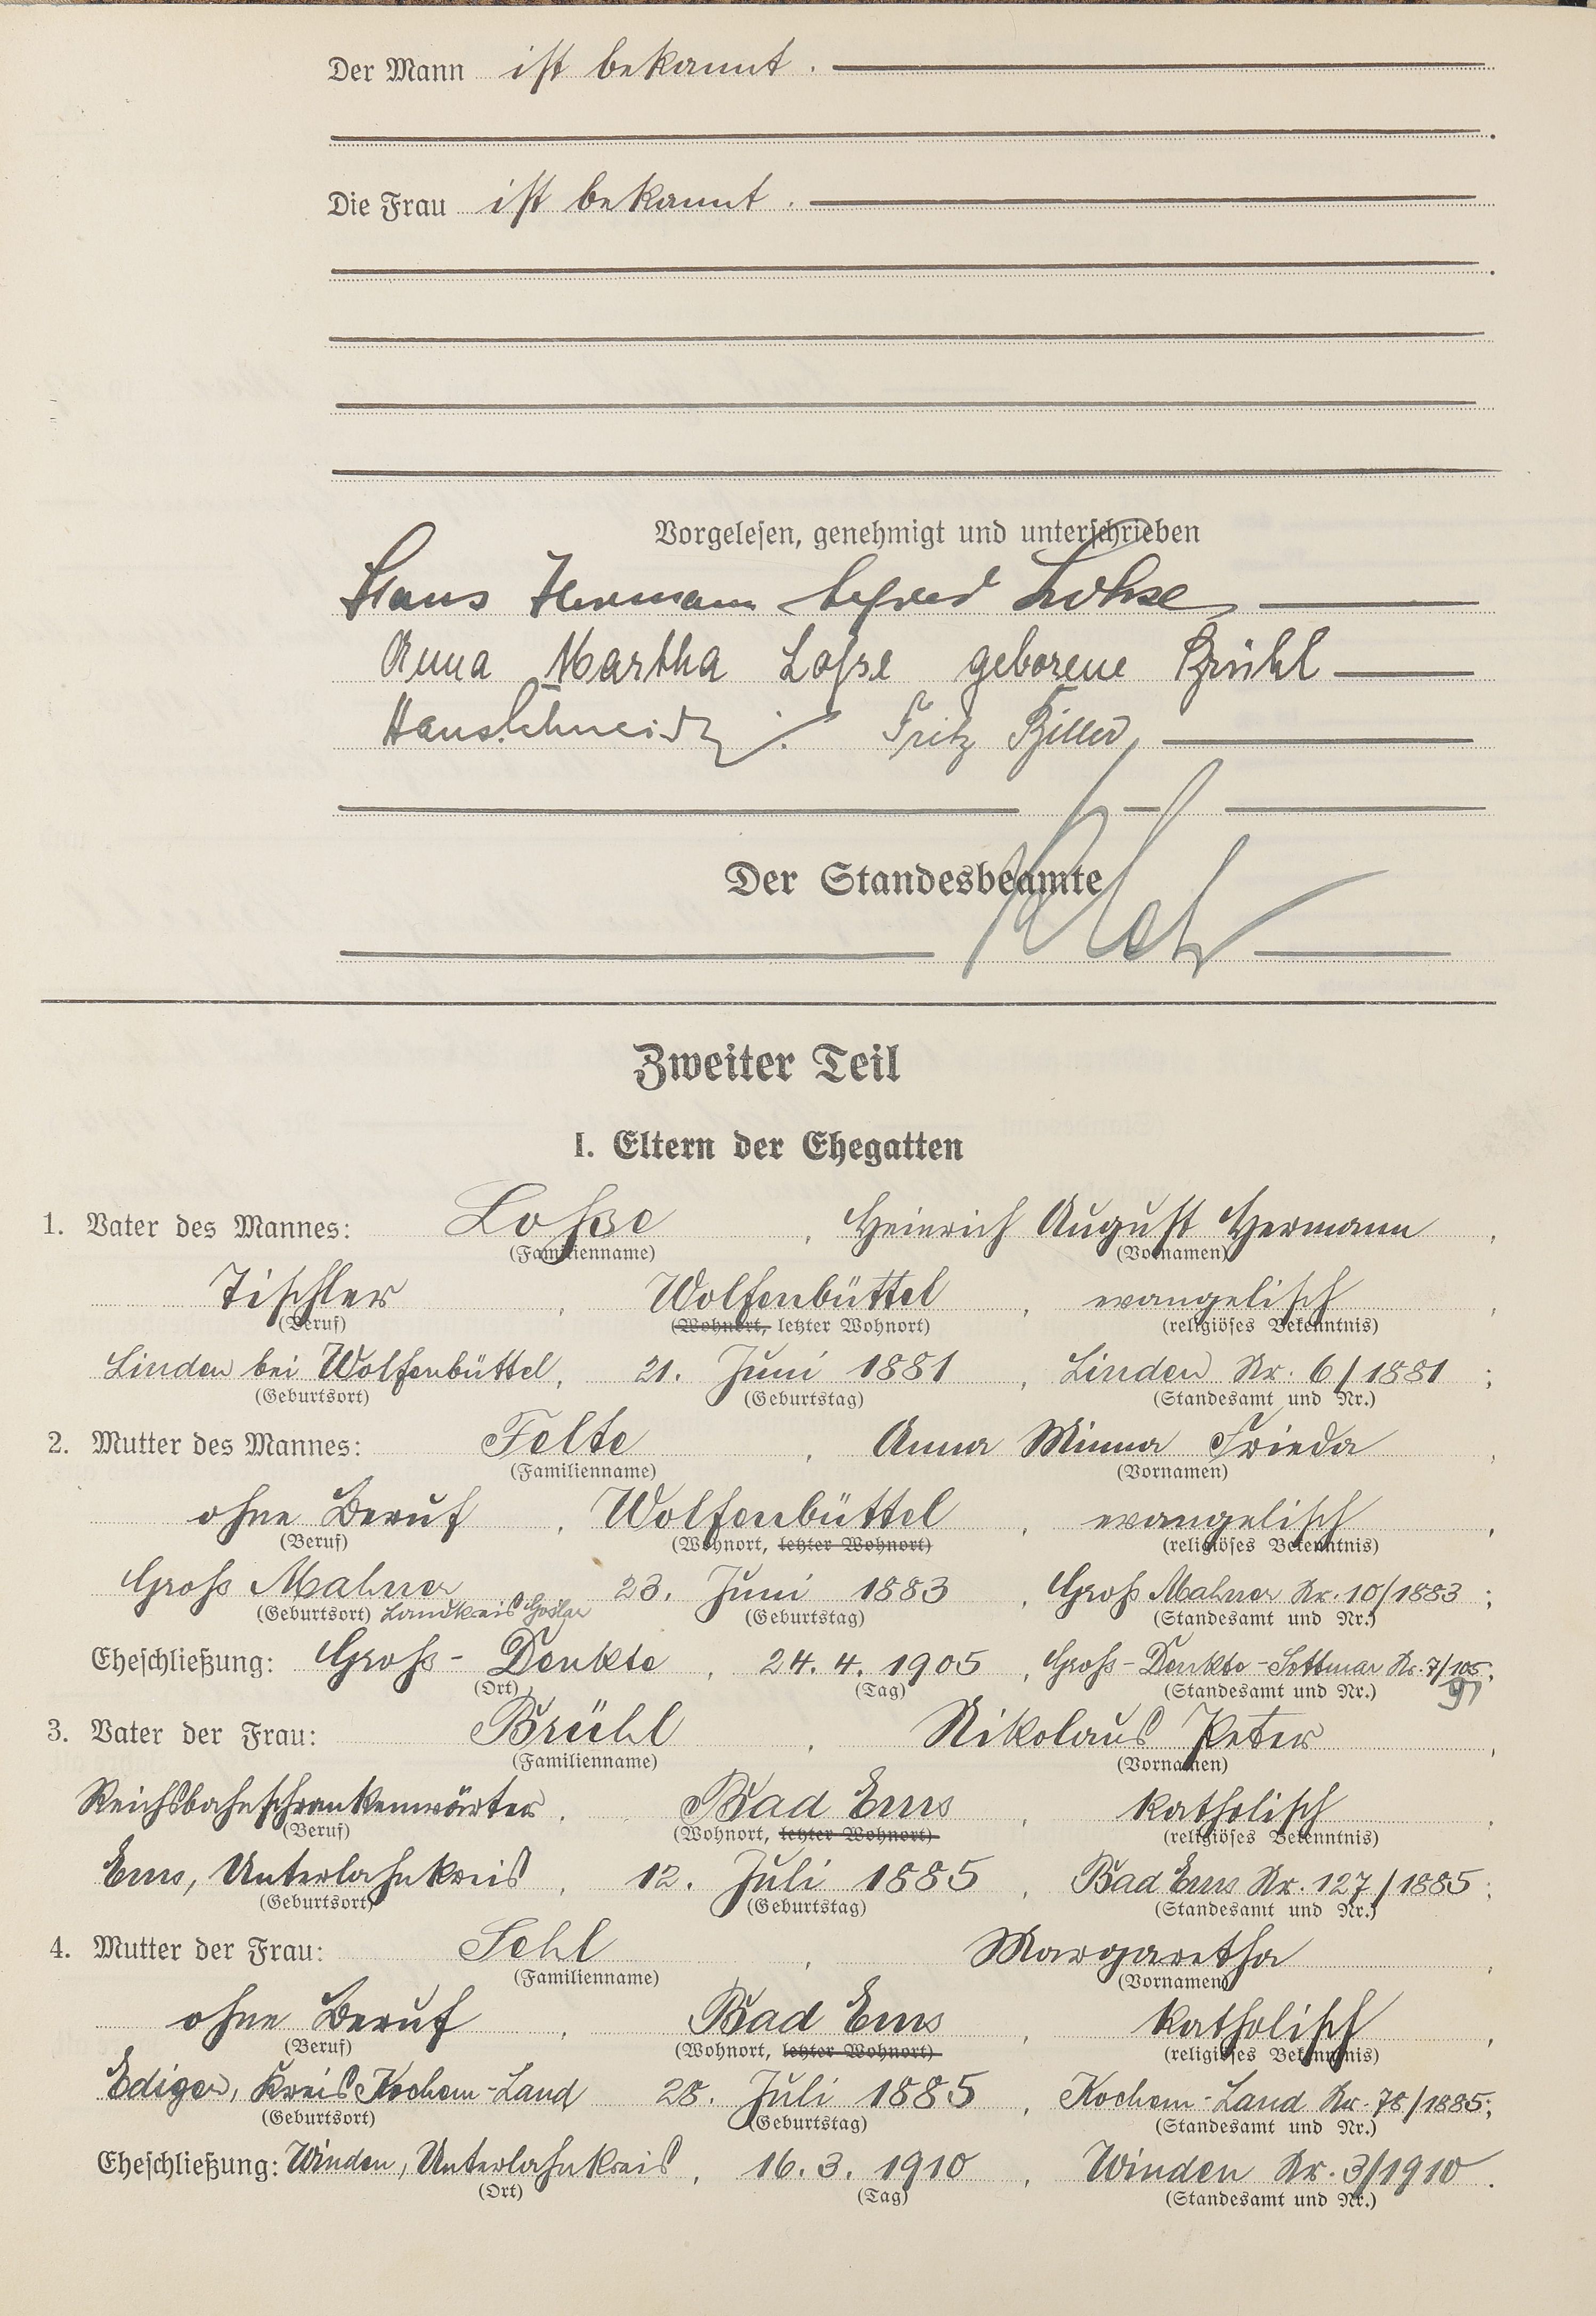 Der Mann ist bekannt.
Die Frau ist bekannt.
Vorgelesen, genehmigt und unterschrieben
Hans Hermann Alfred Lohse
Anna Martha Lohse geborene Brühl
Hans Schneider Fritz Biller
Der Standesbeamte
Zweiter Teil
I. Eltern der Ehegatten
1. Vater des Mannes: Lohse, Heinrich August Hermann,
(Familienname) (Vornamen)
Tischler, Wolfenbüttel, evangelisch,
(Beruf) (Wohnort, letzter Wohnort) (religiöses Bekenntnis)
Linden bei Wolfenbüttel, 21. Juni 1881, Linden Nr. 6/1881;
(Geburtsort) (Geburtstag) (Standesamt und Nr.)
2. Mutter des Mannes: Felte, Anna Minna Frieda,
(Familienname) (Vornamen)
ohne Beruf, Wolfenbüttel, evangelisch,
(Beruf) (Wohnort, letzter Wohnort) (religiöses Bekenntnis)
Groß Mahner 23. Juni 1883, Groß Mahner Nr. 10/1883;
(Geburtsort) Landkreis Goslar (Geburtstag) (Standesamt und Nr.)
Eheschließung: Groß-Denkte, 24. 4. 1905, Groß-Denkte-Sottmar Nr. 7/105;
(Ort) (Tag) (Standesamt und Nr.)
3. Vater der Frau: Brühl, Nikolaus Peter,
(Familienname) (Vornamen)
Reichsbahnschrankenwärter, Bad Ems, katholisch,
(Beruf) (Wohnort, letzter Wohnort) (religiöses Bekenntnis)
Ems, Unterlahnkreis, 12. Juli 1885, Bad Ems Nr. 127/1885;
(Geburtsort) (Geburtstag) (Standesamt und Nr.)
4. Mutter der Frau: Sehl, Margaretha,
(Familienname) (Vornamen)
ohne Beruf, Bad Ems, katholisch,
(Beruf) (Wohnort, letzter Wohnort) (religiöses Bekenntnis)
Ediger, Kreis Kochem-Land 28. Juli 1885, Kochem-Land Nr. 78/1885;
(Geburtsort) (Geburtstag) (Standesamt und Nr.)
Eheschließung: Winden, Unterlahnkreis, 16. 3. 1910, Winden Nr. 3/1910.
(Ort) (Tag) (Standesamt und Nr.)